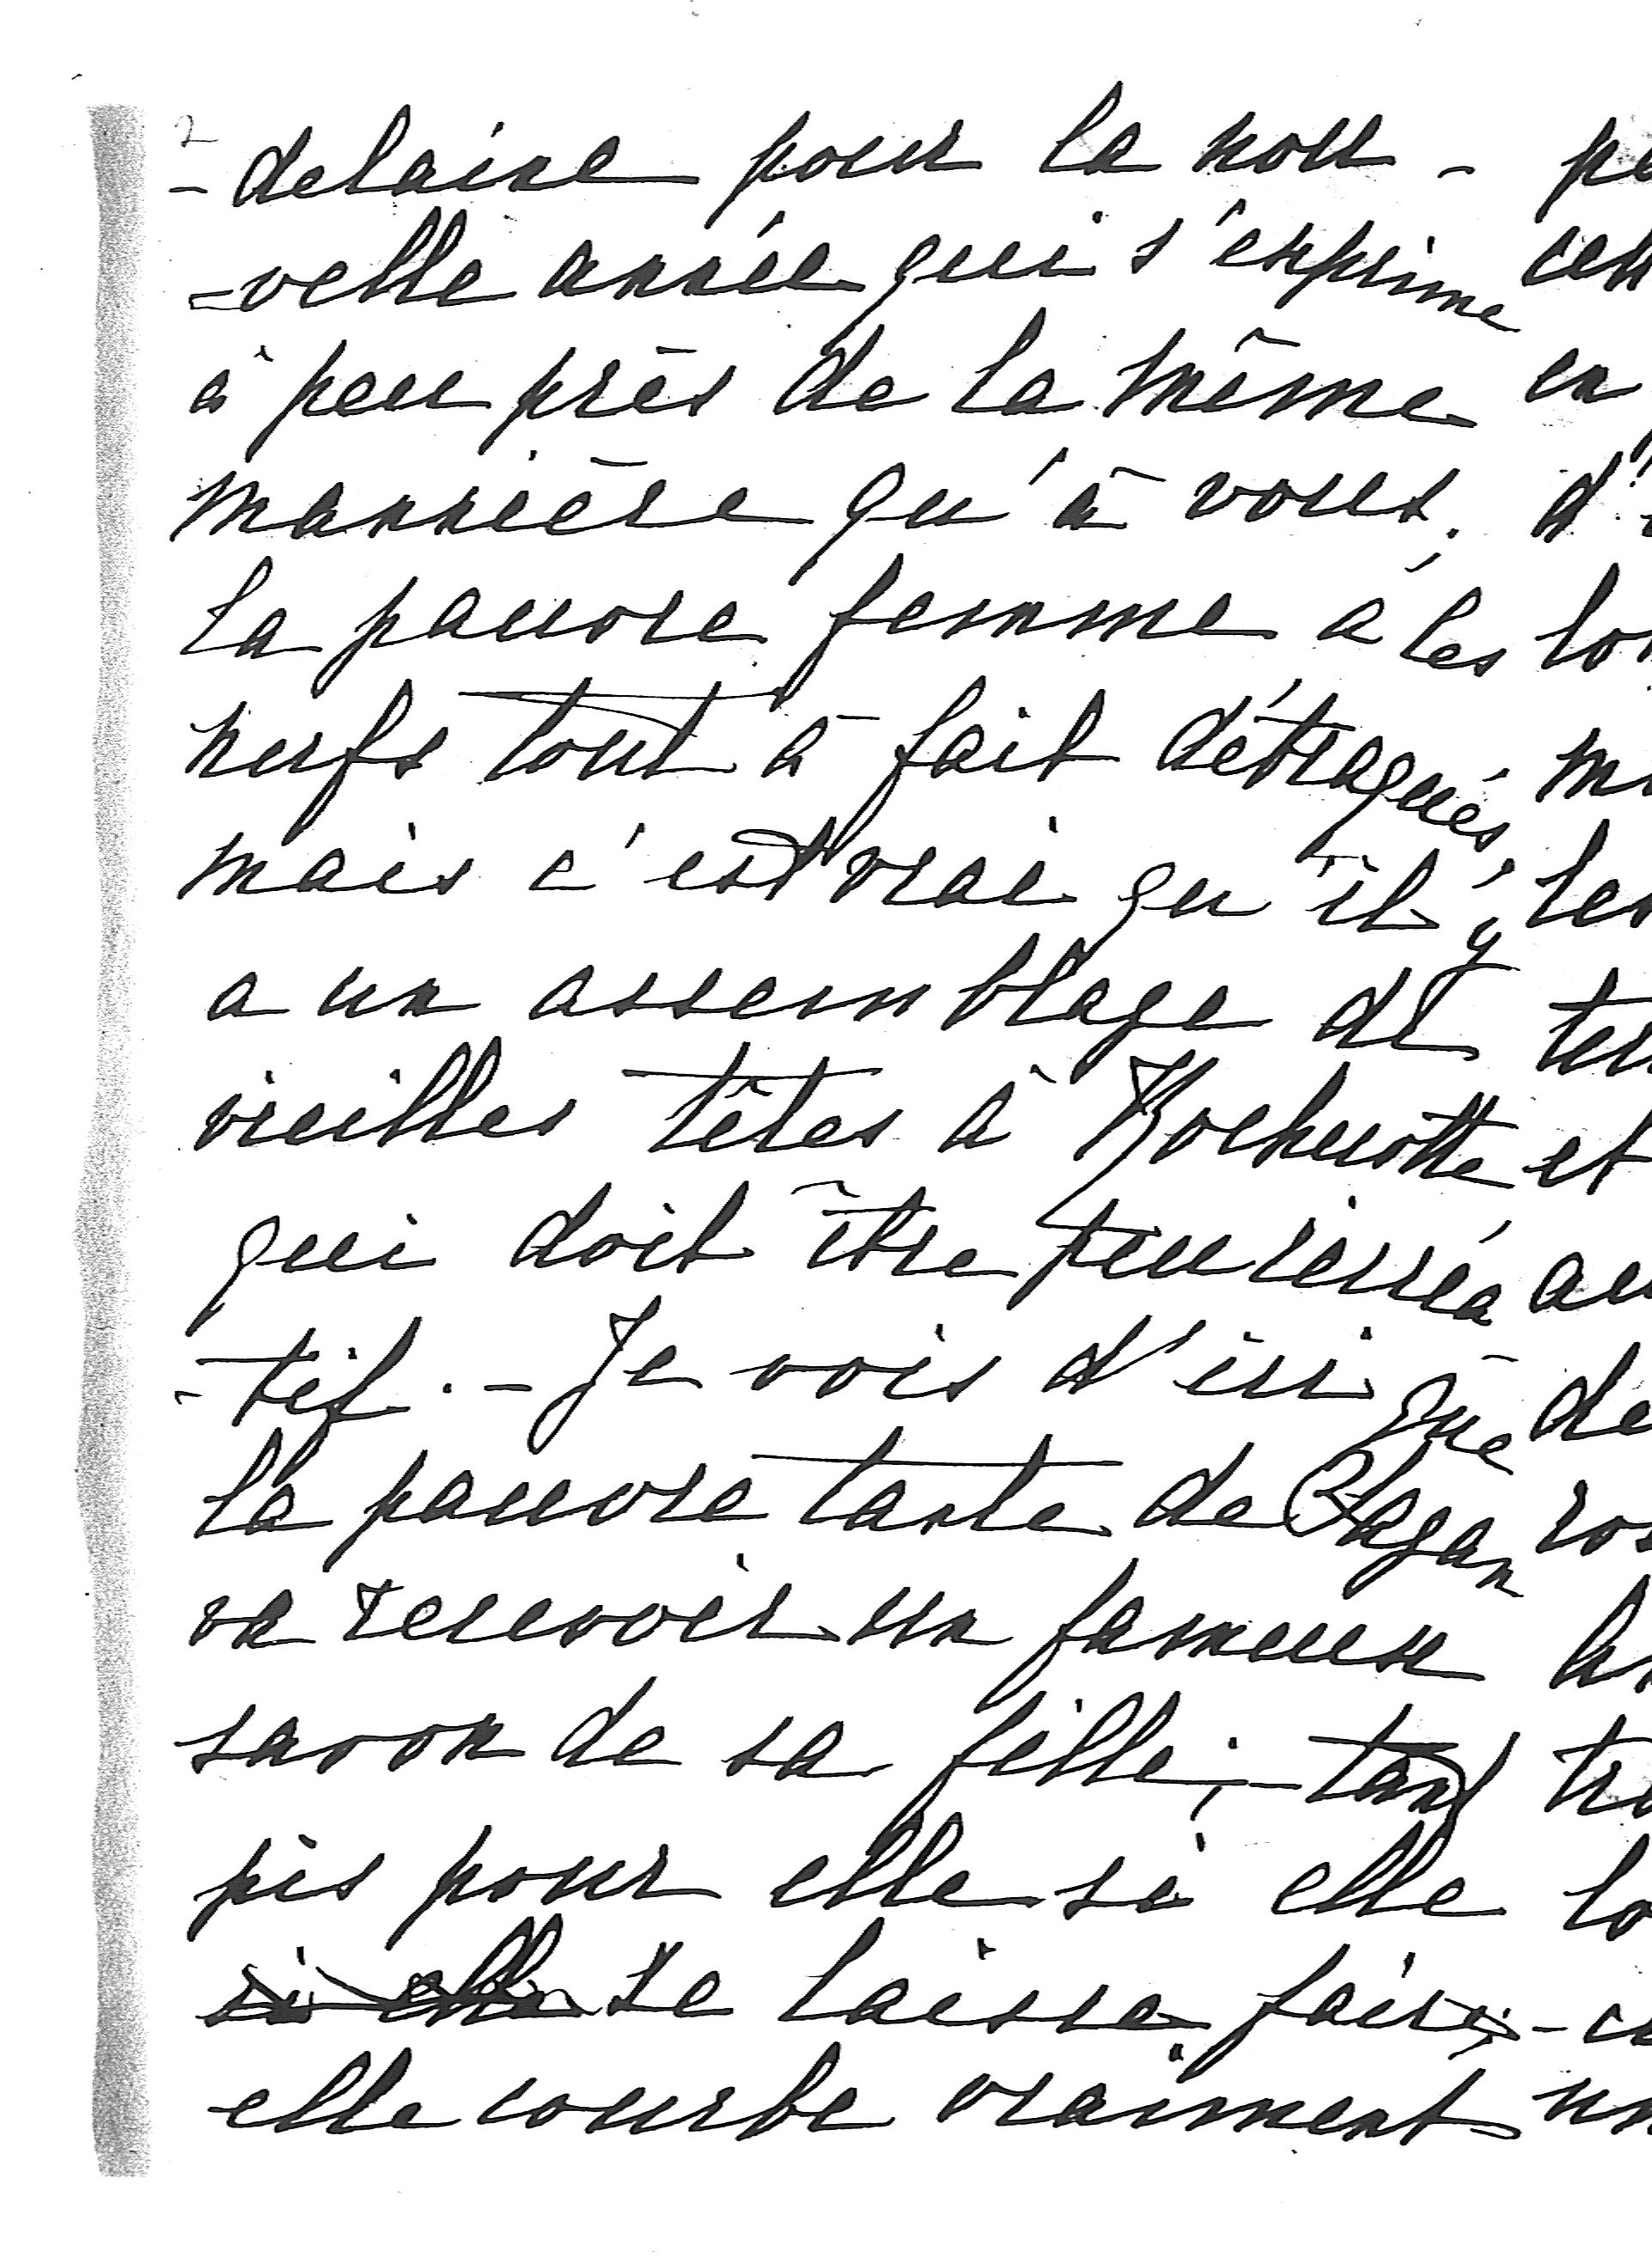 2
-delaine pour la nou-
=velle année qui s'exprime
à peu près de la même
mannière qu'à vous.
La pauvre femme a les
nerfs tout à fait détraqués,
mais c'est vrai qu'il y
a un assemblage de
vieilles têtes à Rochecotte
qui doit être peu récréa
-tif. - Je vois d'ici que
la pauvre tante de Sagan
va recevoir un fameux
savon de sa fille; - tant
pis pour elle si elle
si elle se laisse faire, -
elle courbe vraiment